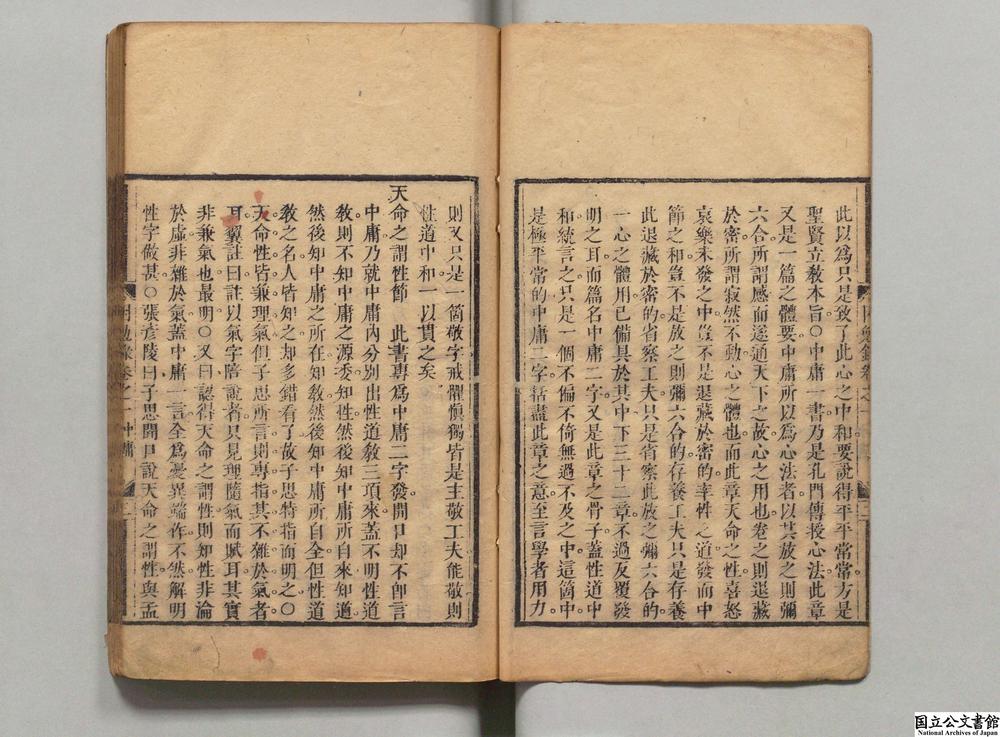 此以爲只是致了此心之中和要說得平平常常方是
聖賢立教本旨○中庸一書乃是孔門傳授心法此章
又是一篇之體要中庸所以爲心法者以其放之則彌
六合所謂感而遂通天下之故心之用也卷之則退藏
於密所謂寂然不動心之體也而此章天命之性喜怒
哀樂未發之中豈不是退藏於密的率性之道發而中
節之和豈不是放之則彌六合的存養工夫只是存養
此退藏於密的省察工夫只是省察此放之彌六合的
一心之體用已備具於其中下三十二章不過反覆發
明之耳而篇名中庸二字又是此章之骨子蓋性道中
和統言之只是一個不偏不倚無過不及之中這箇中
是極平常的中庸二字括盡此章之意至言學者用力
則又只是一箇敬字戒懼慎獨皆是主敬工夫能敬則
性道中和一以貫之矣
天命之謂性節 此書專爲中庸二字發開口却不卽言
中庸乃就中庸內分別出性道教三項來蓋不明性道
教則不知中庸之源委知性然後知中庸所自來知道
然後知中庸之所在知教然後知中庸所自全但性道
教之名人皆知之却多錯看了故子思特指而明之○
天命性皆兼理氣但子思所言則專指其不雜於氣者
耳翼註曰註以氣字陪說者只見理隨氣而賦耳其實
非兼氣也最明○又曰認得天命之謂性則知性非淪
於虛非雜於氣蓋中庸一言全爲憂異端作不然解明
性字做甚○張彥陵曰子思開口說天命之謂性與孟